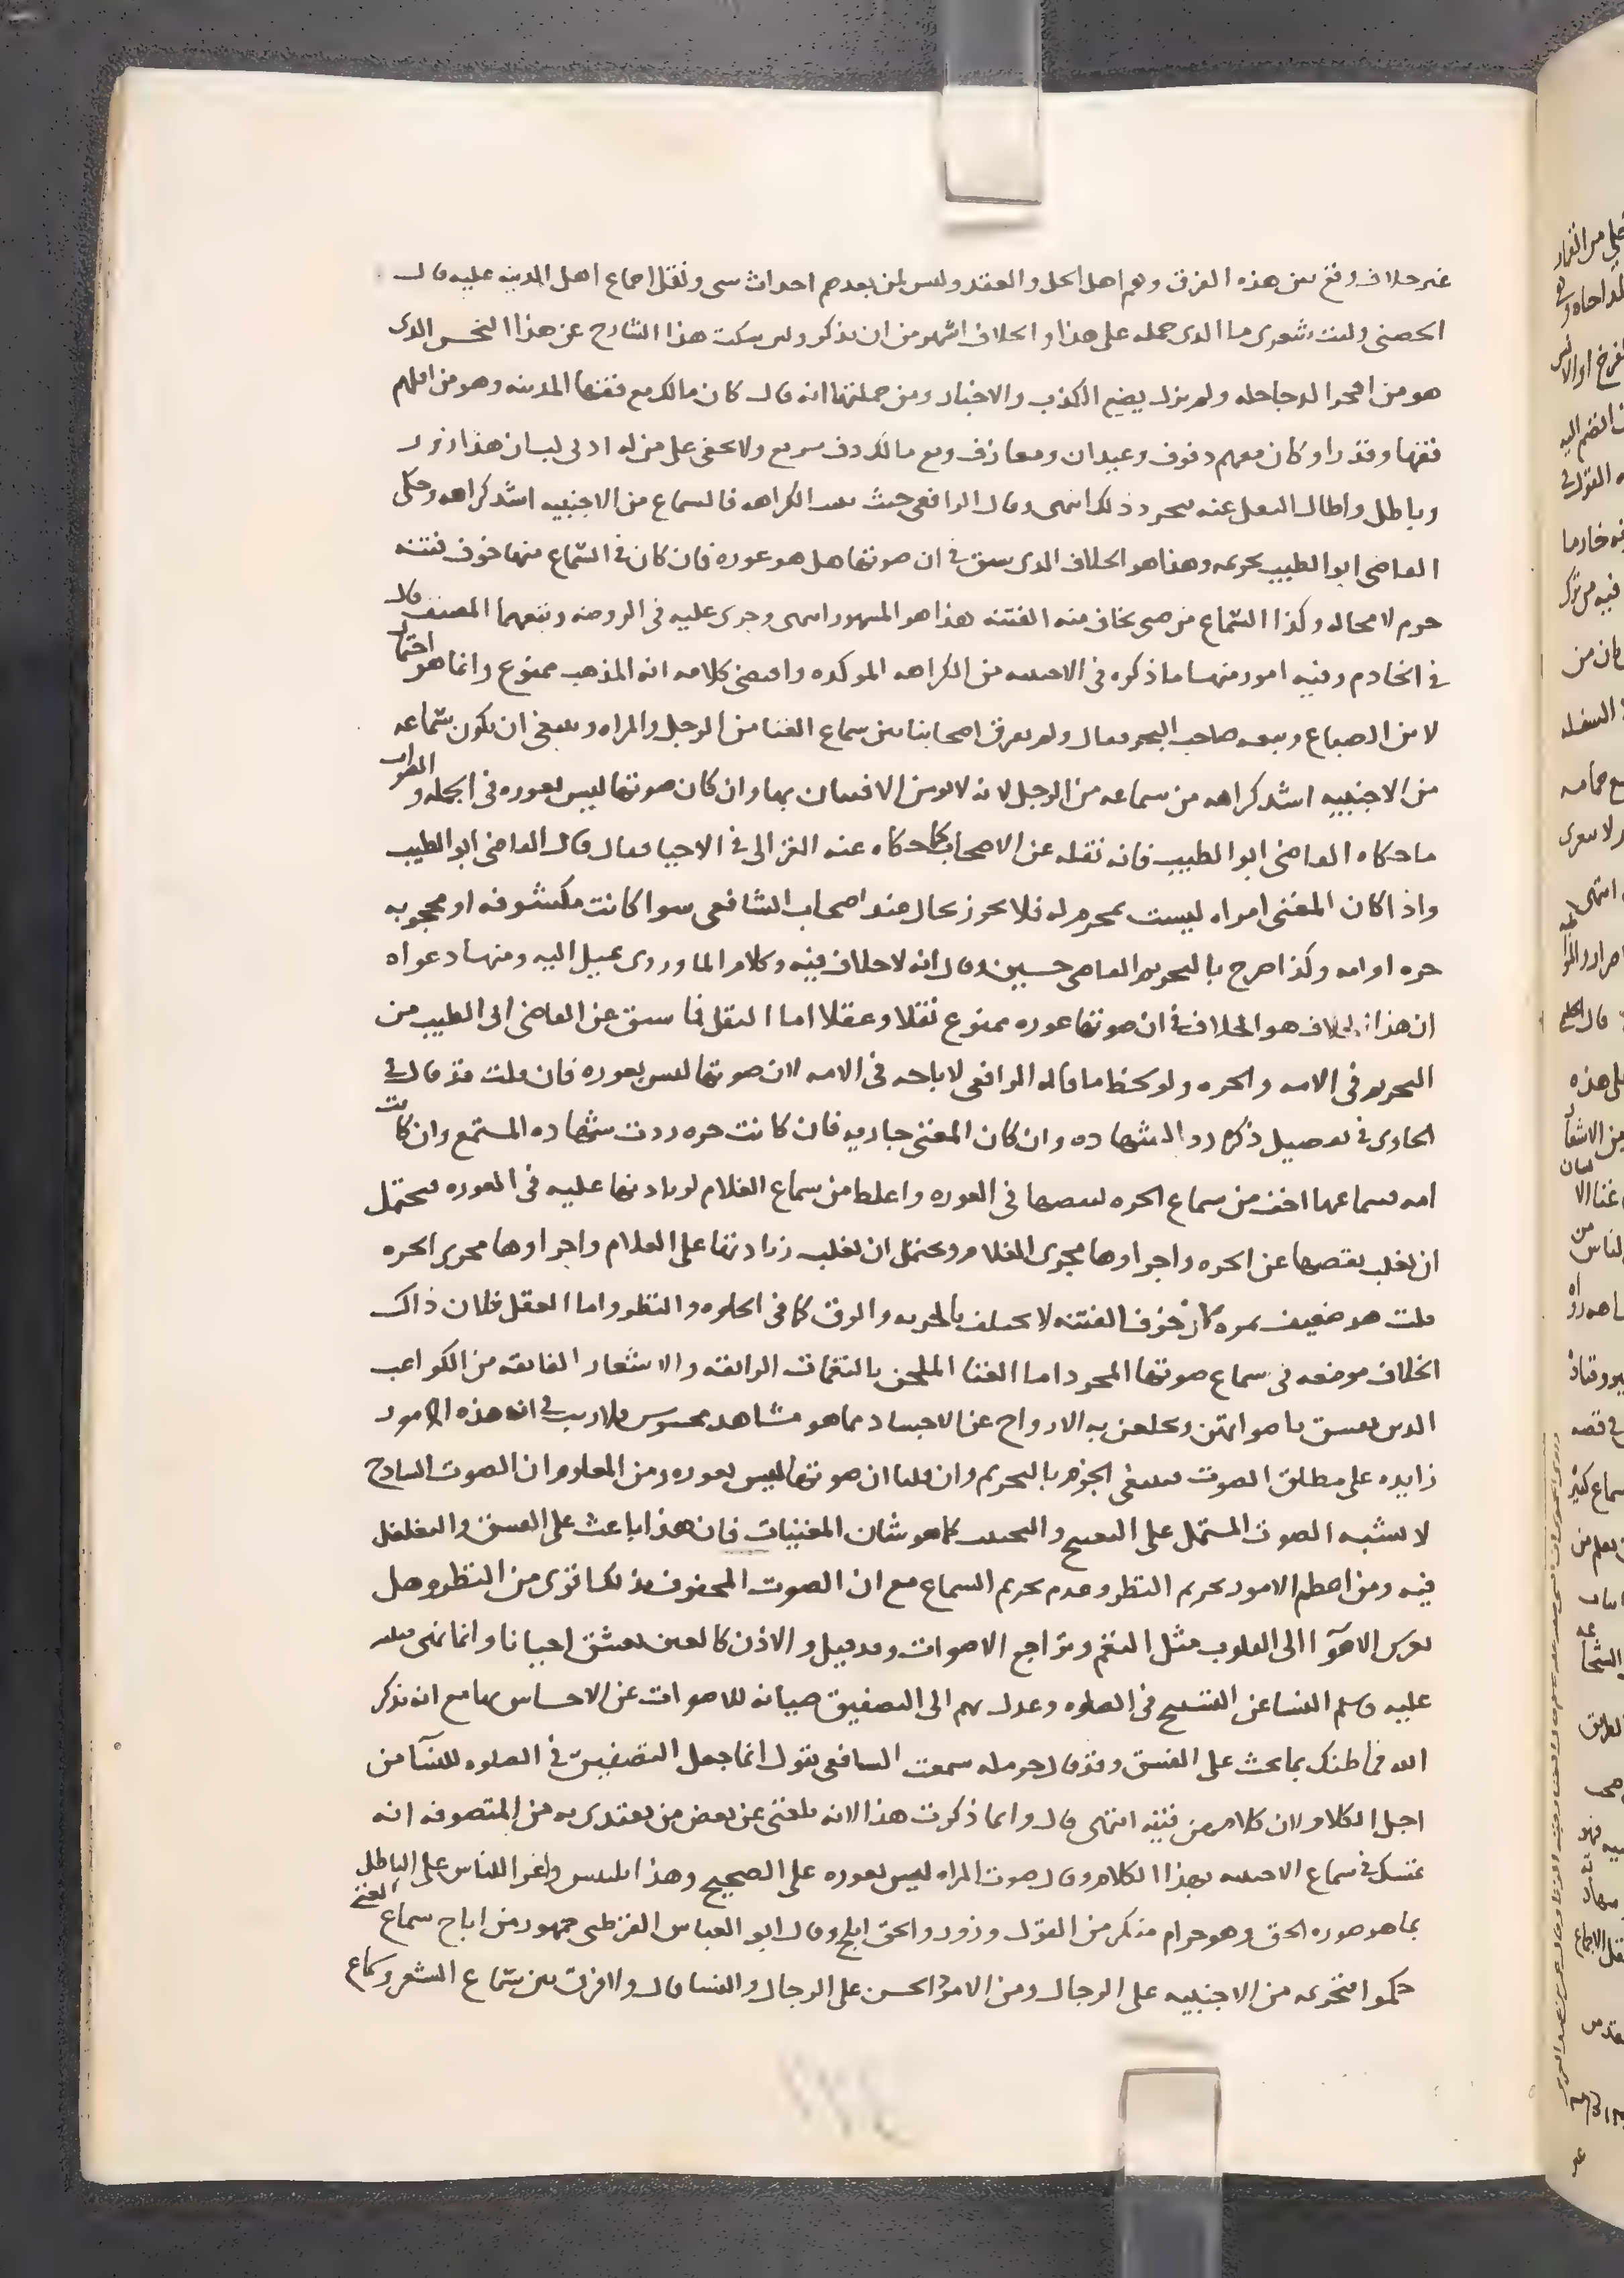 غير خلاف وقع بين هذه الفرق وهم اهل الحل والعقد وليس لمن بعدهم احداث شي ونقل اجماع اهل المدينه عليه قال
الحصني وليت شعري ما الذي حمله على هذا والخلاف اشهر من ان يذكر ولم سكت هذا الشارح عن هذا النحس الذي
هو من افجر الدجاجله ولم يزل يضع الكذب والاخبار ومن جملتها انه قال كان مالك مع فقها المدينه وهو من اقلهم
فقها وقدرا وكان معهم دفوف وعيدان ومعازف ومع مالك دف مربع ولا يخفى على من له ادنى لب ان هذا زور
وباطل واطال النقل عنه بنحو ذلك انتهى وقال الرافعي حيث الكراهه فالسماع من الاجنبيه اشد كراهه وحكى
القاضي ابو الطيب تحريمه وهذا هو الخلاف الذي سبق في ان صوتها هل هو عوره فان كان في السماع منها خوف فتنه
حرم لا محاله وكذا السماع من صبي يخاف منه الفتنه هذا هو المشهور انتهى وجرى عليه في الروضه وتبعهما المصنف قال
في الخادم وفيه امور منها ما ذكره في الاجنبيه من الكراهه الموكده واقتضى كلامه انه المذهب ممنوع وانما هو احتمال
لابن الصباغ وتبعه صاحب البحر فقال ولم يفرق اصحابنا بين سماع الغنا من الرجل والمراه وينبغي ان يكون سماعه
من الاجنبيه اشد كراهه من سماعه من الرجل لانه لا يومن الافتتان بها وان كان صوتها ليس بعوره في الجمله والصواب
ما حكاه القاضي ابو الطيب فانه نقله عن الاصحاب كما حكاه عنه الغزالي في الاحيا فقال قال القاضي ابو الطيب
واذا كان المغني امراه ليست بمحرم له فلا يجوز بحال عند اصحاب الشافعي سوا كانت مكشوفه او محجوبه
حره او امه وكذا صرح بالتحريم القاضي حسين وقال انه لا خلاف فيه وكلام الماوردي يميل اليه ومنها دعواه
ان هذا الخلاف هو الخلاف في ان صوتها عوره ممنوع نقلا وعقلا اما النقل فما سبق عن القاضي ابي الطيب من
التحريم في الامه والحره ولو لحظ ما قاله الرافعي لاباحه في الامه لان صوتها ليس بعوره فان قلت فقد قال في
الحاوي في تفصيل ذكره رد الشهاده وان كان المغني جاريه فان كانت حره ردت شهاده المستمع وان كانت
امه فسماعها اخف من سماع الحره لنقصها في العوره واغلظ من سماع الغلام لزيادتها عليه في العوره فيحتمل
ان يغلب نقصها عن الحره واجراوها مجرى الغلام ويحتمل ان يغلب زيادتها على الغلام واجراوها مجرى الحره
قلت هو ضعيف بمره لان خوف الفتنه لا يختلف بالحريه والرق كما في الخلوه والنظر واما العقل فلان ذاك
الخلاف موضعه في سماع صوتها المجرد اما الغنا الملحن بالنغمات الرائقه والاشعار الفائقه من الكواعب
الذين يعشق باصواتهن ويخلعن به الارواح عن الاجساد مما هو مشاهد محسوس فلا ريب في ان هذه الامور
زايده على مطلق الصوت فينبغي الجزم بالتحريم وان قلنا ان صوتها ليس بعوره ومن المعلوم ان الصوت الساذج
لا يشبه الصوت المشتمل على و كما هو شان المغنيات فان هذا باعث على العشق والتغلغل
فيه ومن اعظم الامور تحريم النظر وعدم تحريم السماع مع ان الصوت المحفوف بذلك اقوى من النظر وهل
الاهوا الى القلوب مثل النغم وتراجع الاصوات وقد قيل والاذن كالعين تعشق احيانا وانما نهى
عليه وسلم النسا عن التسبيح في الصلوه وعدل بهم الى التصفيق صيانه للاصوات عن الاحساس بها مع انه بذكر
الله فما ظنك بما يحث على الفسق وقد قال حرمله سمعت الشافعي يقول انما جعل التصفيق في الصلوه للنسا من
اجل الكلام لان كلامهن فتنه انتهى قال وانما ذكرت هذا لانه بلغني عن بعض من يقتدى به من المتصوفه انه
يتمسك في سماع الاجنبيه بهذا الكلام وقال صوت المراه ليس بعوره على الصحيح وهذا تلبيس واغرا للناس على الباطل
بما هو صوره الحق وهو حرام منكر من القول وزور والحق ابلج وقال ابو العباس القرطبي جمهور من اباح سماع الغنى
حكموا بتحريمه من الاجنبيه على الرجال ومن الامرد الحسن على الرجال والنسا قال ولا فرق بين سماع الشعر وسماع